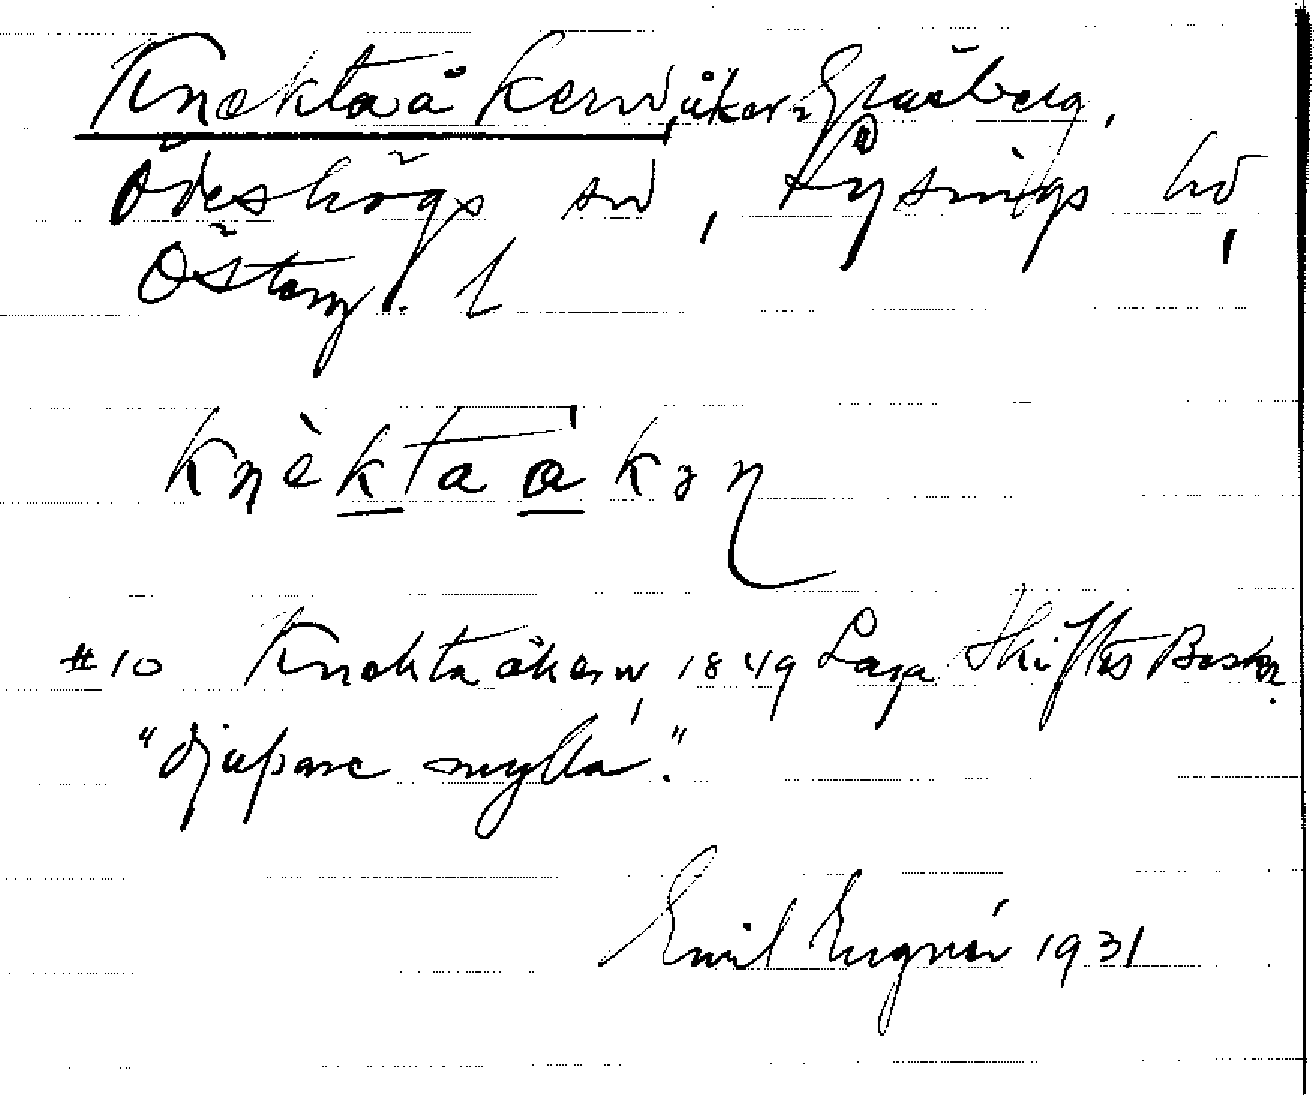 Knektaåkern, åker, Gråberg,
Ödeshögs sn, Lysings hd,
Österg. l
knὲktaåkən
#10 Knektaåkern, 1849 Laga Skiftes Beskr.
"djupare mylla".
Emil Engnér 1931